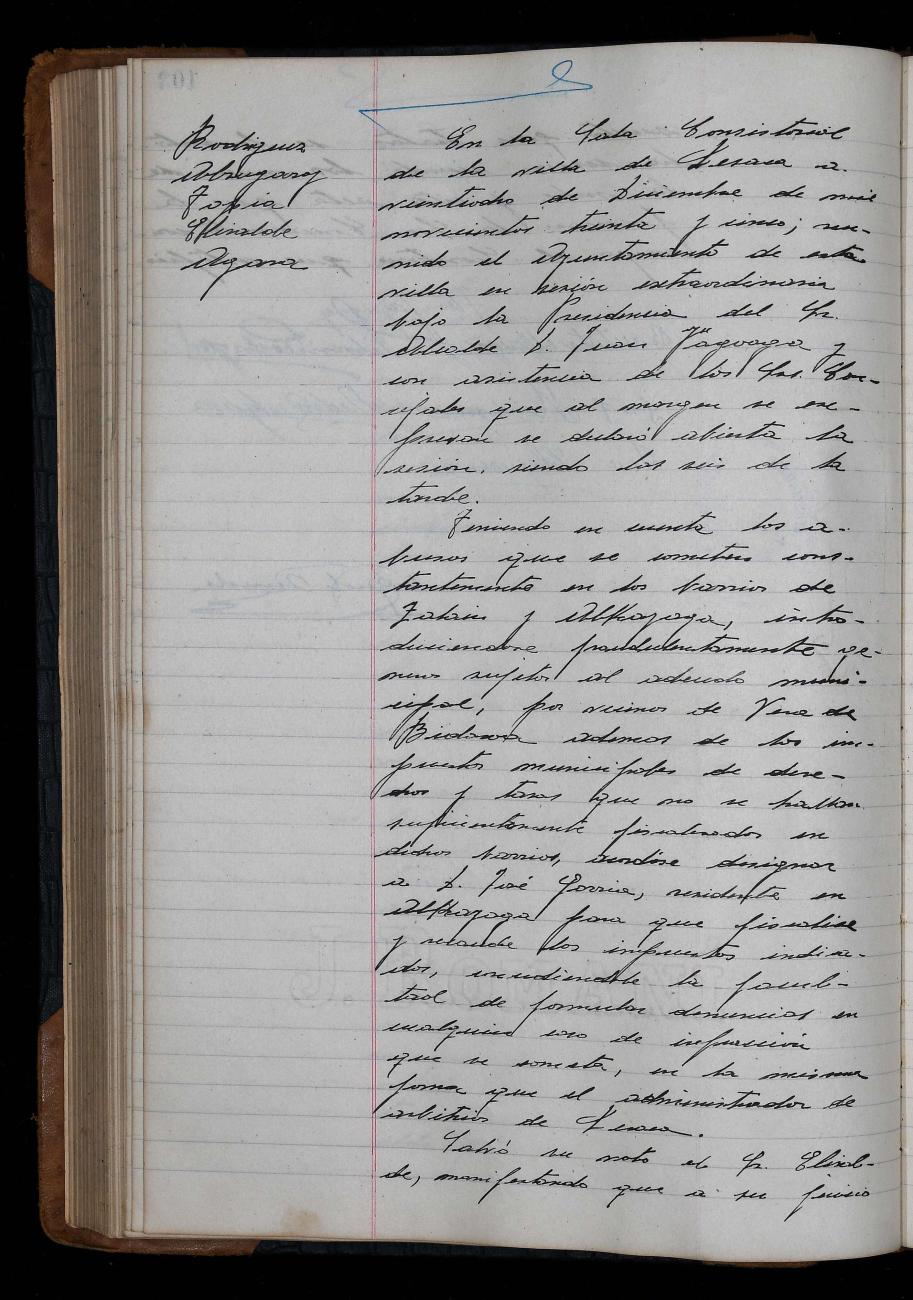 Rodriguez
Tapia
Elizalde
Agara
En la Sala Consistorial
de la villa de Lesaca a
veintiocho de Diciembre de mil
novecientos treinta y cinco; reu-
nido el Ayuntamiento de esta
villa en sesión extraordinaria
bajo la Presidencia del Sr.
Alcalde D. Juan Yagoaga y
con asistencia de los Srs. Con-
cejales que al margen se ex-
presan se declaró abierta la
sesión, siendo las seis de la
tarde.
Teniendo en cuenta los a-
busos que se cometen cons-
tantemente en los barrios de
Zalain y Alkayaga, intro-
duciendose fraudulentamente ge-
neros sujetos al adeudo muni-
cipal, por vecinos de Vera de
Bidasoa ademas de los im-
puestos municipales de dere-
chos y tasas que no se hallan
suficientemente fiscalizados en
dichos barrios, acordóse designar
a D. José Gorria, residente en
Alkayaga para que fiscalice
y recaude los impuestos indica-
dos, concediendole la facul-
tad de formular denuncias en
cualquier caso de infracción
que se cometa, en la misma
forma que el administrador de
arbitrios de Lesaca.
Salvó su voto el Sr. Elizal-
de, manifestando que a su juicio